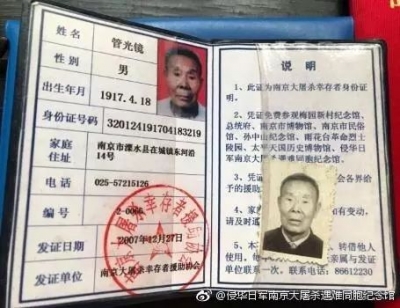 姓名 管光镜
性别 男
出生年月 1917.4.18
身份证号码 320124191704183219
家庭住址 南京市溧水县在城镇东河沿
14号
电话 025-57215126
编号
发证日期 2007年12月27日
发证单位 南京大屠杀幸存者援助协会
说明
1、此证为南京大屠杀幸存者证
明。
2、凭证免费参观梅园新村纪念馆、
总统府、南京市博物馆、南京市民俗
馆、孙中山纪念馆、雨花台革命烈士
陵园、太平天国历史博物馆、侵华日
军南京大屠杀遇难同胞纪念馆。
3、凭
会各界给
予的援
4、
有变动,
请及时
5、
转借他人
使用。
亲属与发
证单位联系。联系电话:86612230
@侵华日军南京大屠杀遇难同胞纪念馆